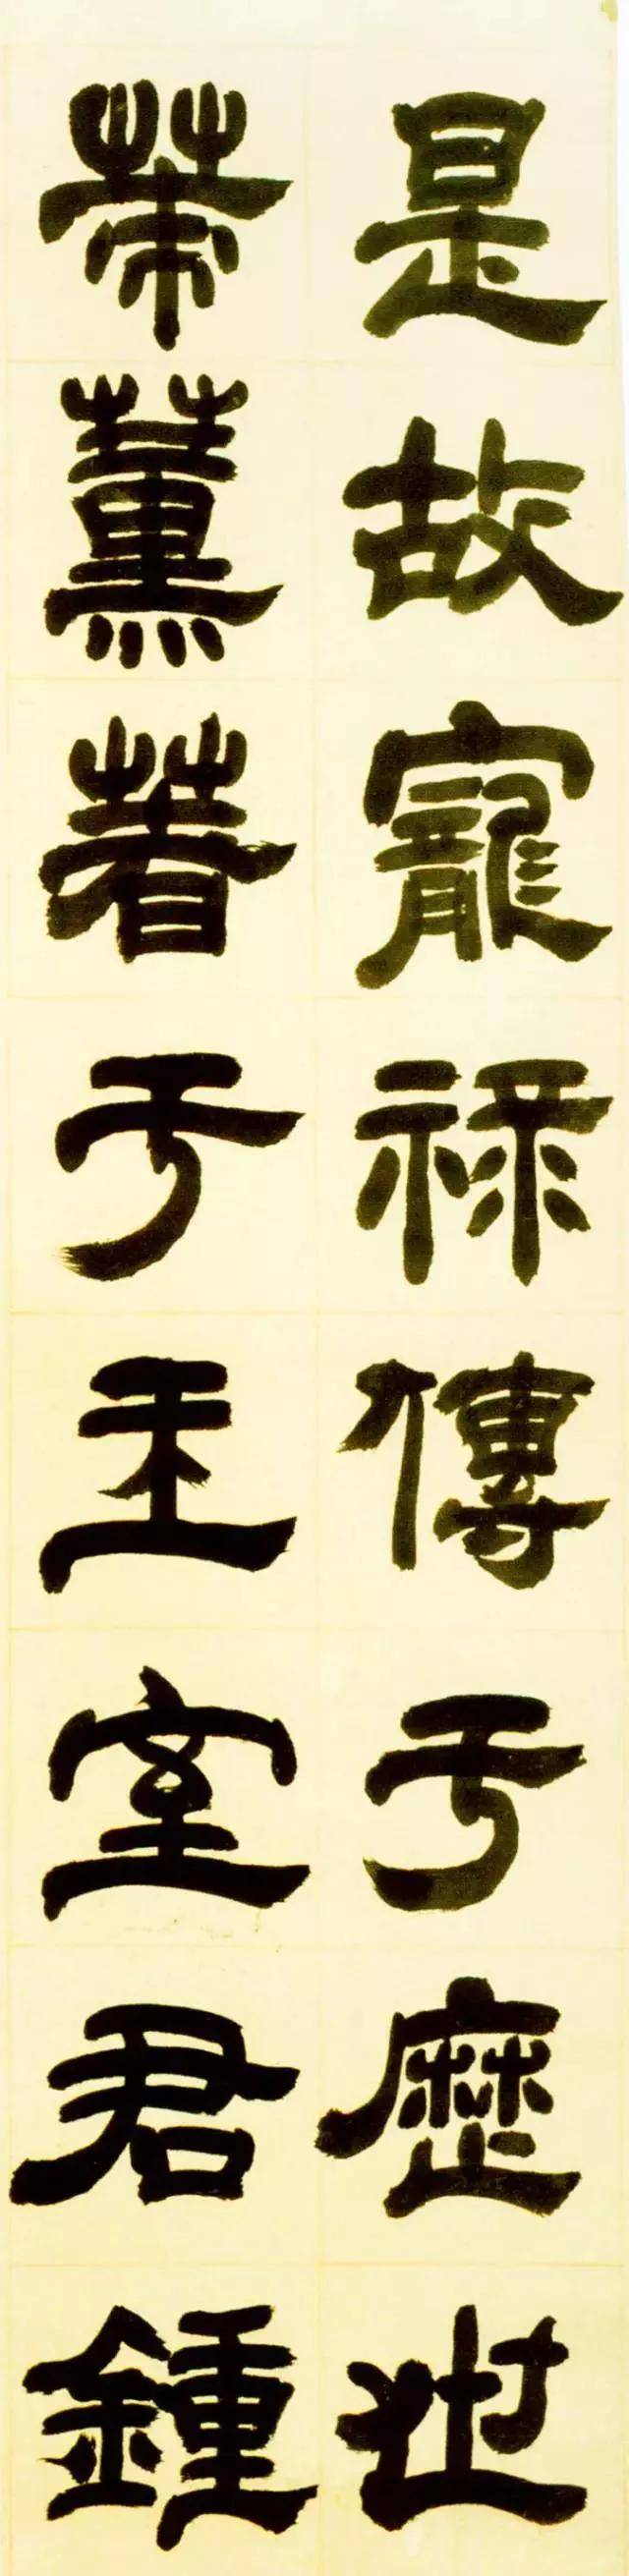 是故寵祿傳于歷世
策薰著于王室君鍾